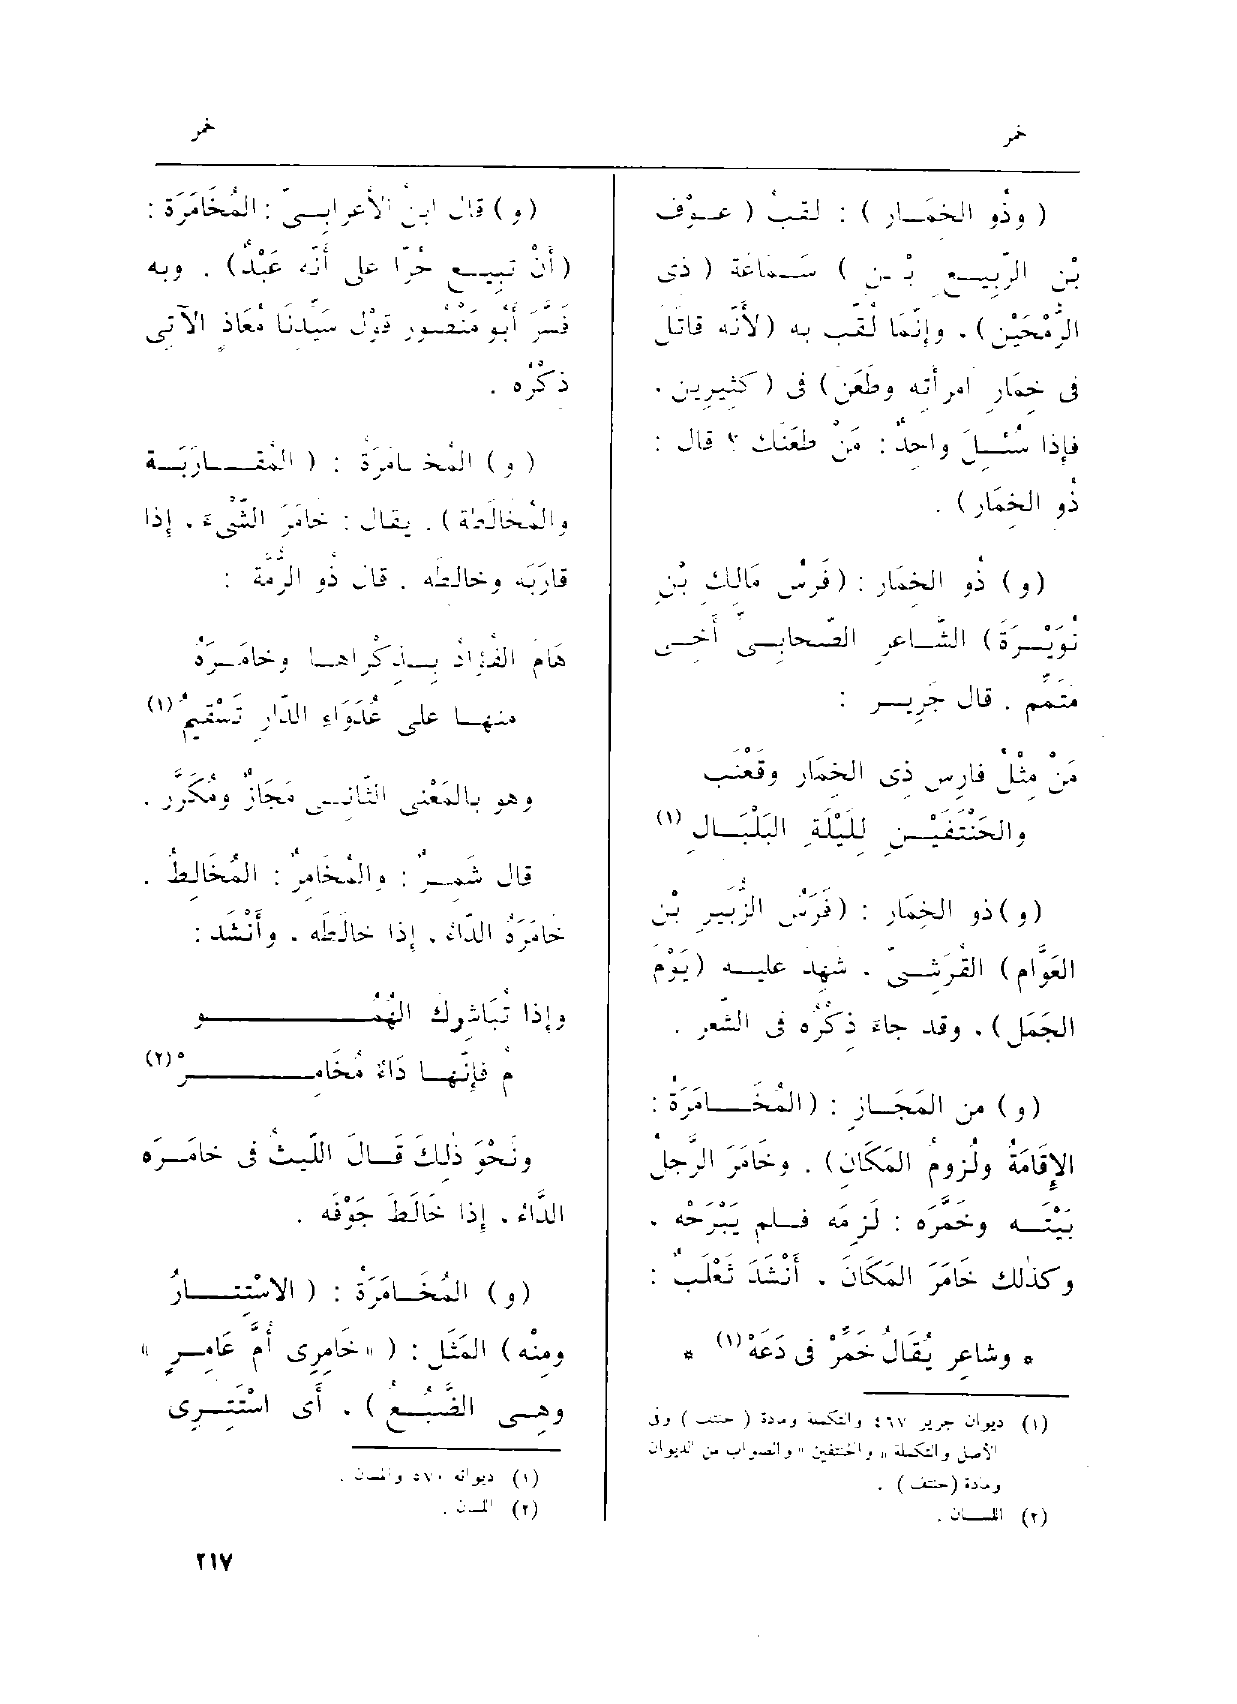 خمر
خمر
( وذُو الخِمَـار ) : لقبُ ( عـوْف
بْنِ الرَّبِيـع بْـنِ ) سَـمَاعَة ( ذى
الرُّمْحَيْنِ ) . وإنّمَا لُقِّب به (لأَنّه قاتَلَ
فى خِمَارِ امرأَتِه وطَعَن) فى (كثِيرِين .
فإذا سُئِـلَ واحِدٌ : مَنْ طعَنَك ؟ قال :
ذُو الخِمَار) .
(و) ذُو الخِمَار : (فَرَسُ مَالِكِ بْنِ
نُوَيْـرَةَ) الشَّـاعرِ الصّحابـىِّ أَخِـى
مُتَمِّم . قال جَرِيـر :
مَنْ مِثْلُ فارِسِ ذِى الخِمَار وقَعْنَب
والحَنْتَفَيْـنِ لِلَيْلَةِ البَلْبَـالِ (١)
(و) ذو الخِمَار : (فَرَسُ الزُّبَيرِ بْنِ
العَوَّام) القُرَشـىّ . شهِد عليـه (يَوْمَ
الجَمَلِ) . وقد جاءَ ذِكْرُه فى الشّعر .
(و) من المَجَـازِ : (المُخَـامَرَةُ :
الإقَامَةُ ولُزومُ المَكَانِ) . وخَامَرَ الرَّجلُ
بَيْتَـه وخَمَّرَه : لَزِمَه فـلم يَبْرَحْه .
وكذٰلك خَامَرَ المَكَانَ . أَنْشَدَ ثَعْلَبٌ :
* وشاعرٍ يُقَالُ خَمِّرْ فى دَعَهْ (١) *
(١) ديوان جرير ٤٦٧ والتكملة ومادة ( حنتف ) وفى
الأصل والتكملة « والحنتفين » والصواب من الديوان
ومادة (حنتف ) .
(٢) اللسـان .
(و) قال ابنُ الأَعرابـىّ : المُخَامَرَة :
(أَنْ تَبِيـع حُرًّا على أَنّه عَبْدٌ) . وبه
فَسَّرَ أَبُو مَنْصُور قَوْل سَيِّدِنَا مُعَاذٍ الآتى
ذِكْرُه .
(و) المُخـامَرَةُ : ( المُقـارَبَـة
والمُخالَطة) . يقال : خامَرَ الشَّىْءَ . إذا
قارَبَه وخالطَه . قال ذُو الرُّمَّة :
هَامَ الفُؤَادُ بِـذِكْراهـا وخامَـرَهُ
منهـا على عُدَوَاءِ الدّارِ تَسْقِيمُ (١)
وهو بالمَعْنى الثّانِـى مَجَازٌ ومُكَرَّر .
قال شَمِـرٌ : والمُخَامِرُ : المُخَالِطُ .
خَامَرَهُ الدّاءُ . إذا خالَطَه . وأَنْشَد :
وإذا تُبَاشِرْك الهُمُـــــو
مُ فإنّهـا دَاءٌ مُخَامِـــــرْ (٢)
ونَحْوَ ذٰلِكَ قَـالَ اللَّيثُ فى خامَـرَه
الدَّاءُ . إذا خَالَطَ جَوْفَه .
(و) المُخَـامَرَةُ : ( الاسْتِتـارُ
ومِنْه) المَثَل : ( « خَامِرِى أُمَّ عَامِـرٍ »
وهـى الضَّبُـعُ ) . أَى اسْتَتِـرِى
(١) ديوانه ٥٧٠ واللسان .
(٢) اللسان .
٢١٧